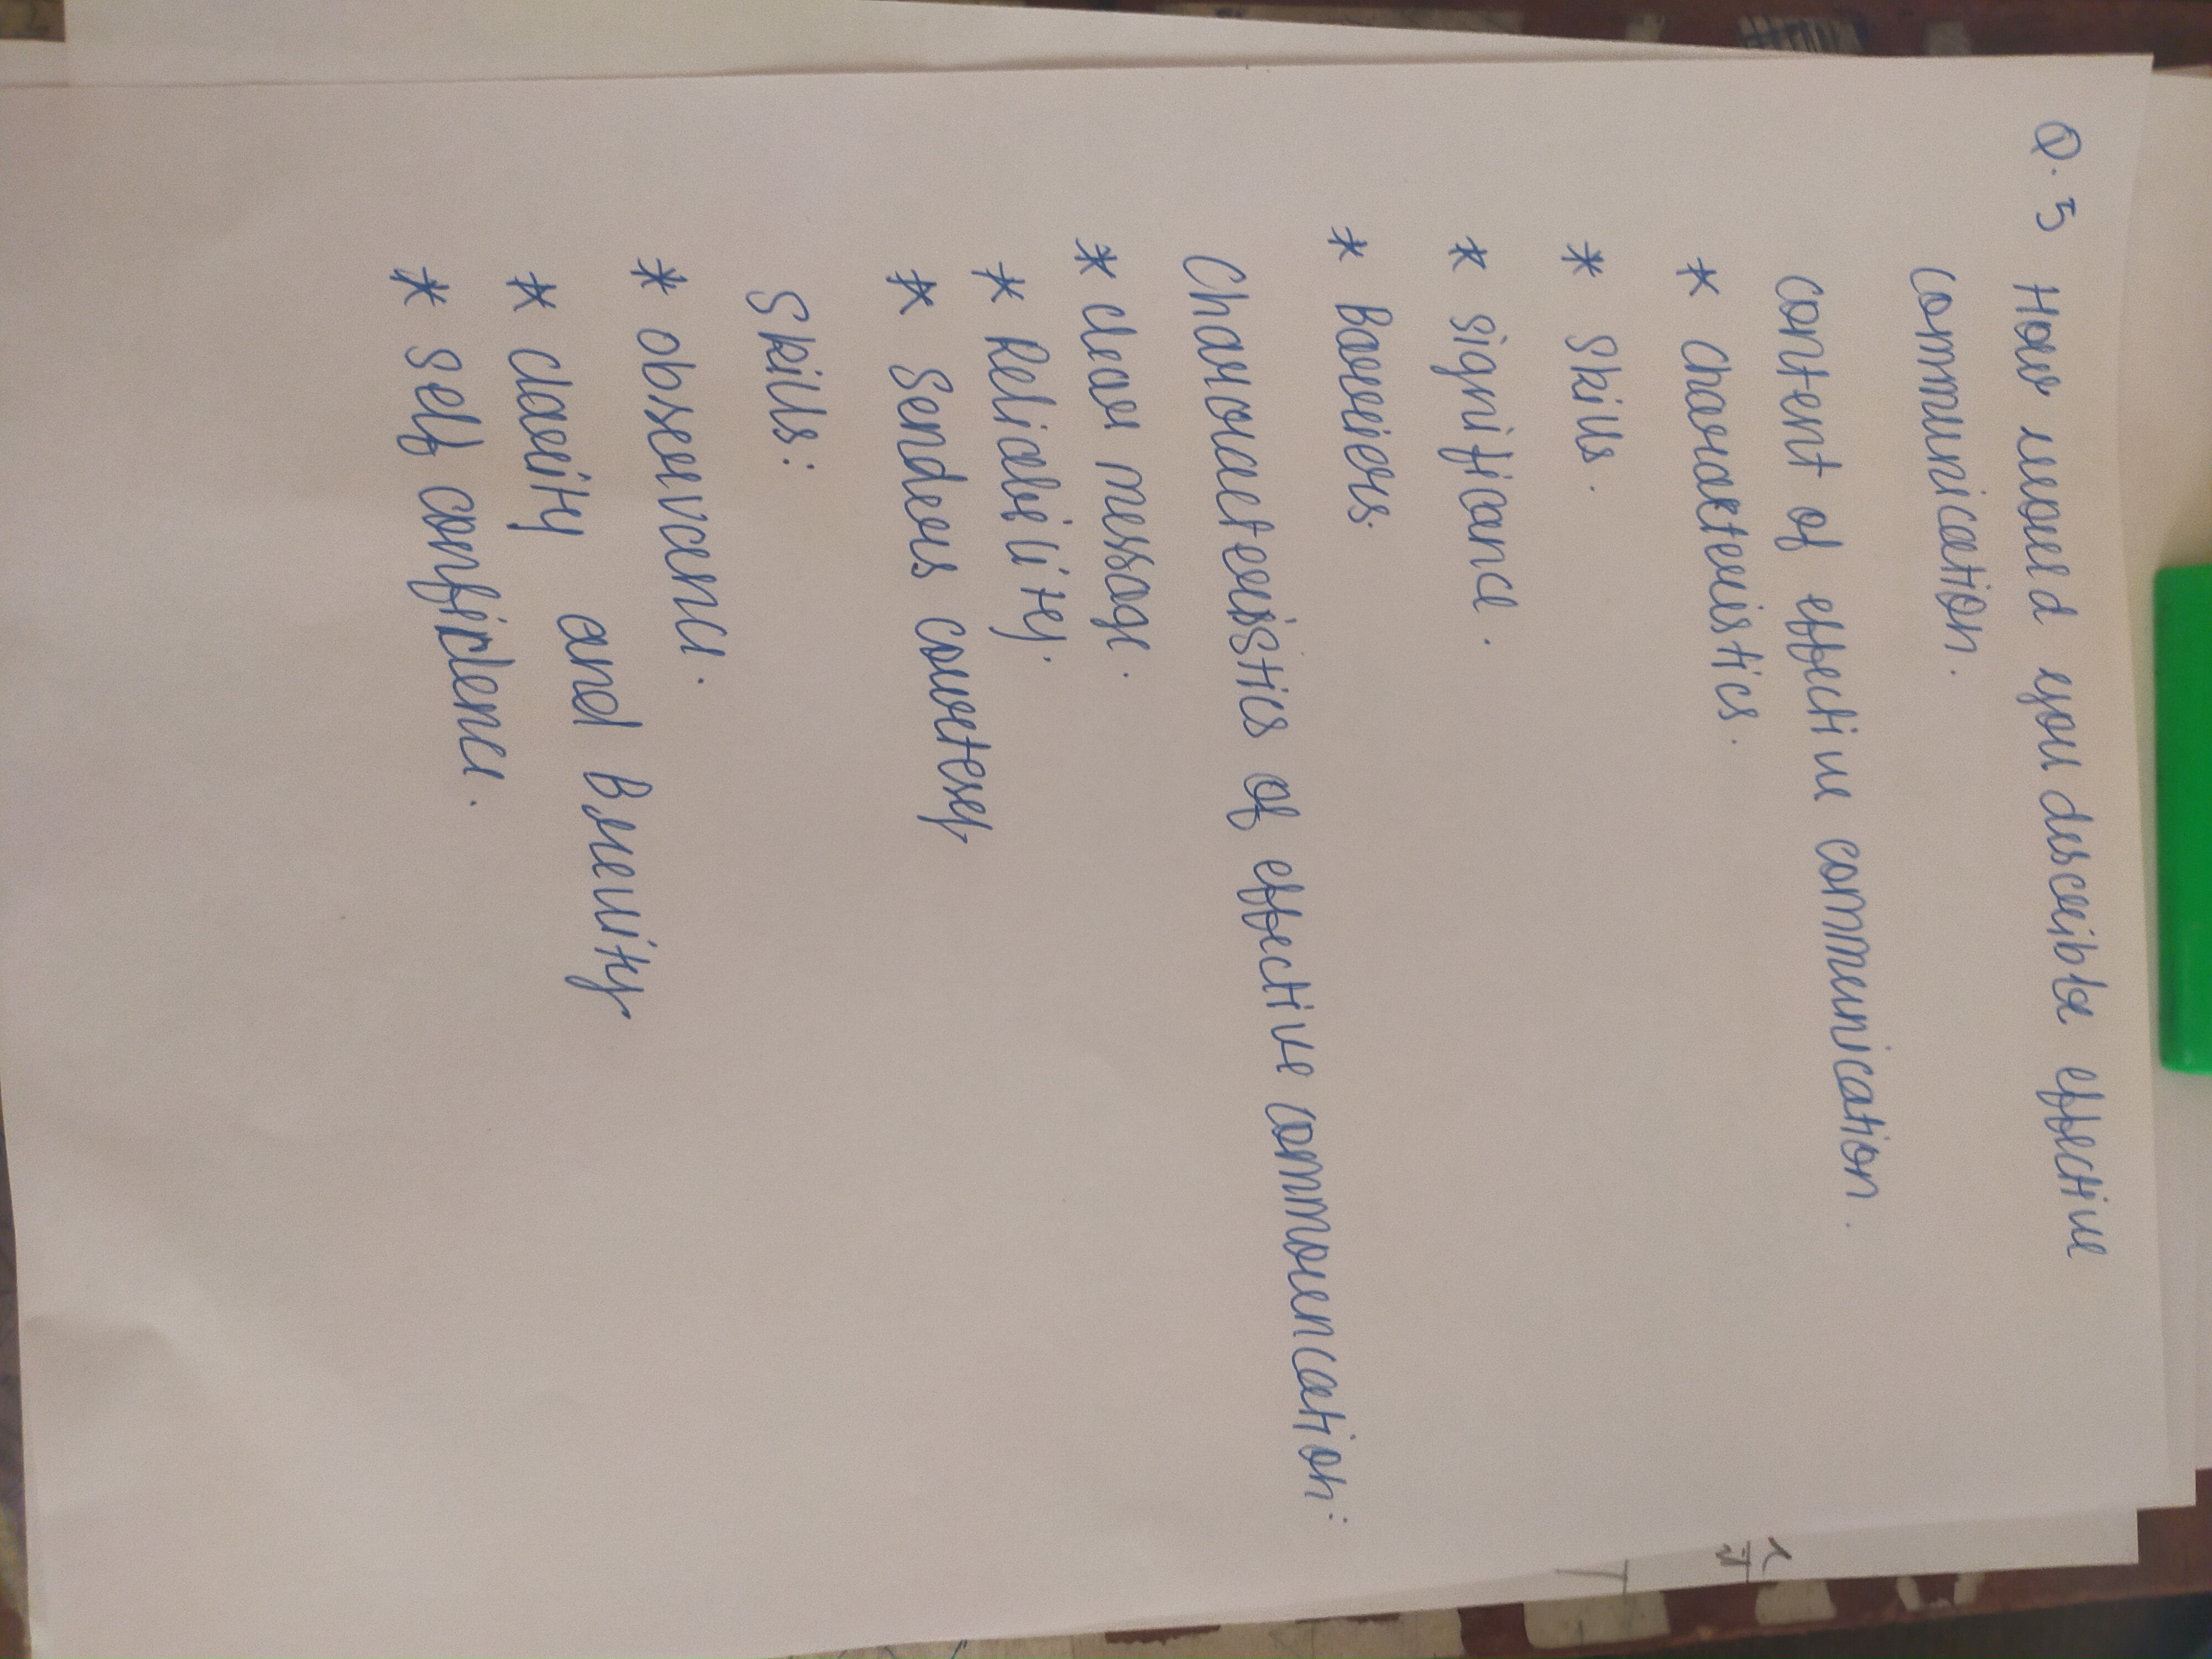 Q. 5 How would you describle effective
communication.
content of effective communication.
* Characteristics.
* Skills.
* significance.
* Barriers.
Chararacteristics of effective commouncation:
* clear message.
* Reliability.
* Senders courtesy
Skills:
* observance.
* clarity and Brevity
* self confidence.